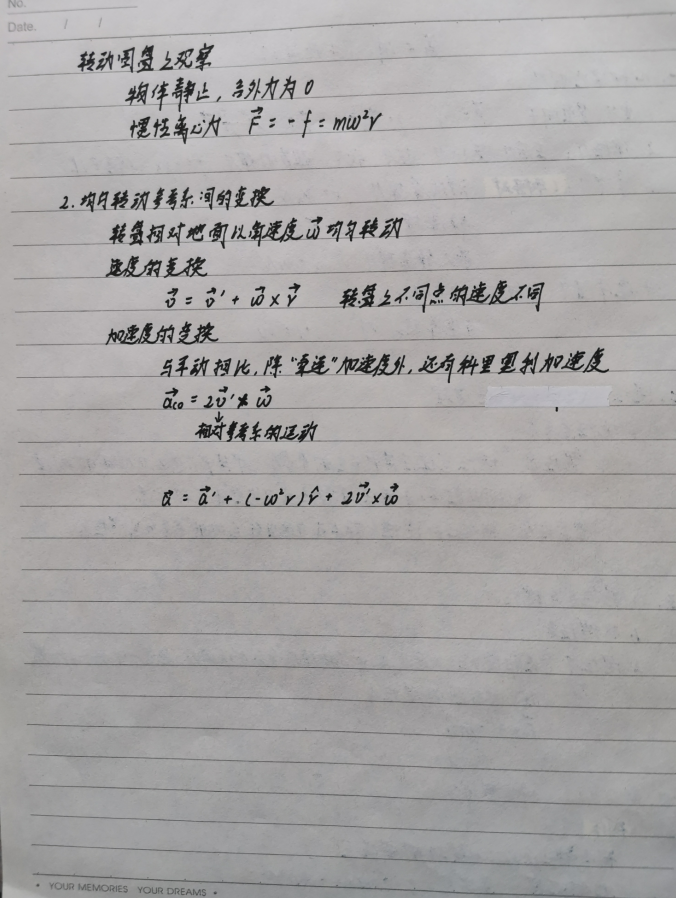 No.
Date. / /
转动圆盘上观察
物体静止，合外力为0
惯性离心力 F⃗ = -f = mω²r
2. 均匀转动参考系间的变换
转盘相对地面以角速度ω⃗均匀转动
速度的变换
v⃗ = v⃗' + ω⃗ × r⃗ 转盘上不同点的速度不同
加速度的变换
与平动相比，除"牵连"加速度外，还有科里奥利加速度
a⃗co = 2v⃗' × ω⃗
↓
相对参考系的运动
a⃗ = a⃗' + (-ω²r)r̂ + 2v⃗' × ω⃗
• YOUR MEMORIES YOUR DREAMS •